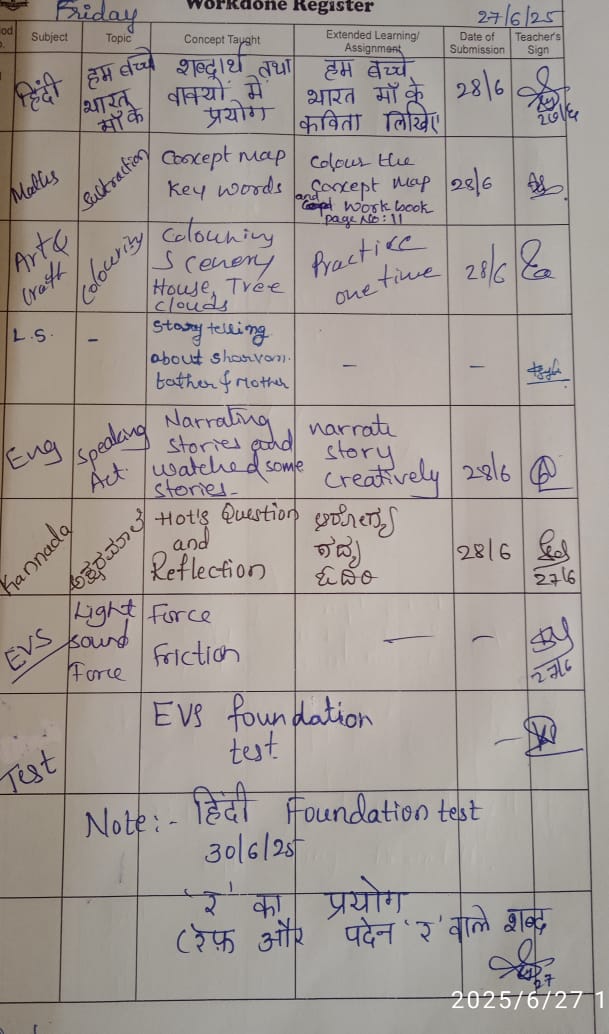 Workdone Register
Friday
27/6/25
Subject Topic Concept Taught Extended Learning/ Assignment Date of Submission Teacher's Sign
हिंदी
हम बच्चे
भारत
माँ के
शब्दार्थ तथा
वाक्यों में
प्रयोग
हम बच्चे
भारत माँ के
कविता लिखिए
28/6
Maths
Subtraction
Concept map
Key words
Colour the
Concept map
and work book
page No: 11
28/6
Art &
Craft
Colouring
Colouring
Scenery
House, Tree
clouds
Practice
one time
28/6
L.S.
-
Story telling
about Sharvan.
father & Mother
-
-
Eng
Speaking
Act.
Narrating
stories and
watched some
stories-
narrate
story
creatively
28/6
Kannada
ಅಕ್ಷರಮಾಲೆ
Hot's Question
and
Reflection
ಆರೋಗ್ಯ
ಗದ್ಯ
ಓದಿರಿ
28/6
27/6
EVS
Light
sound
Force
Force
Friction
-
-
27/6
Test
EVS foundation
test
-
Note:- हिंदी Foundation test
30/6/25
'र' का प्रयोग
(रेफ़ और पदेन 'र' वाले शब्द
27
2025/6/27 1